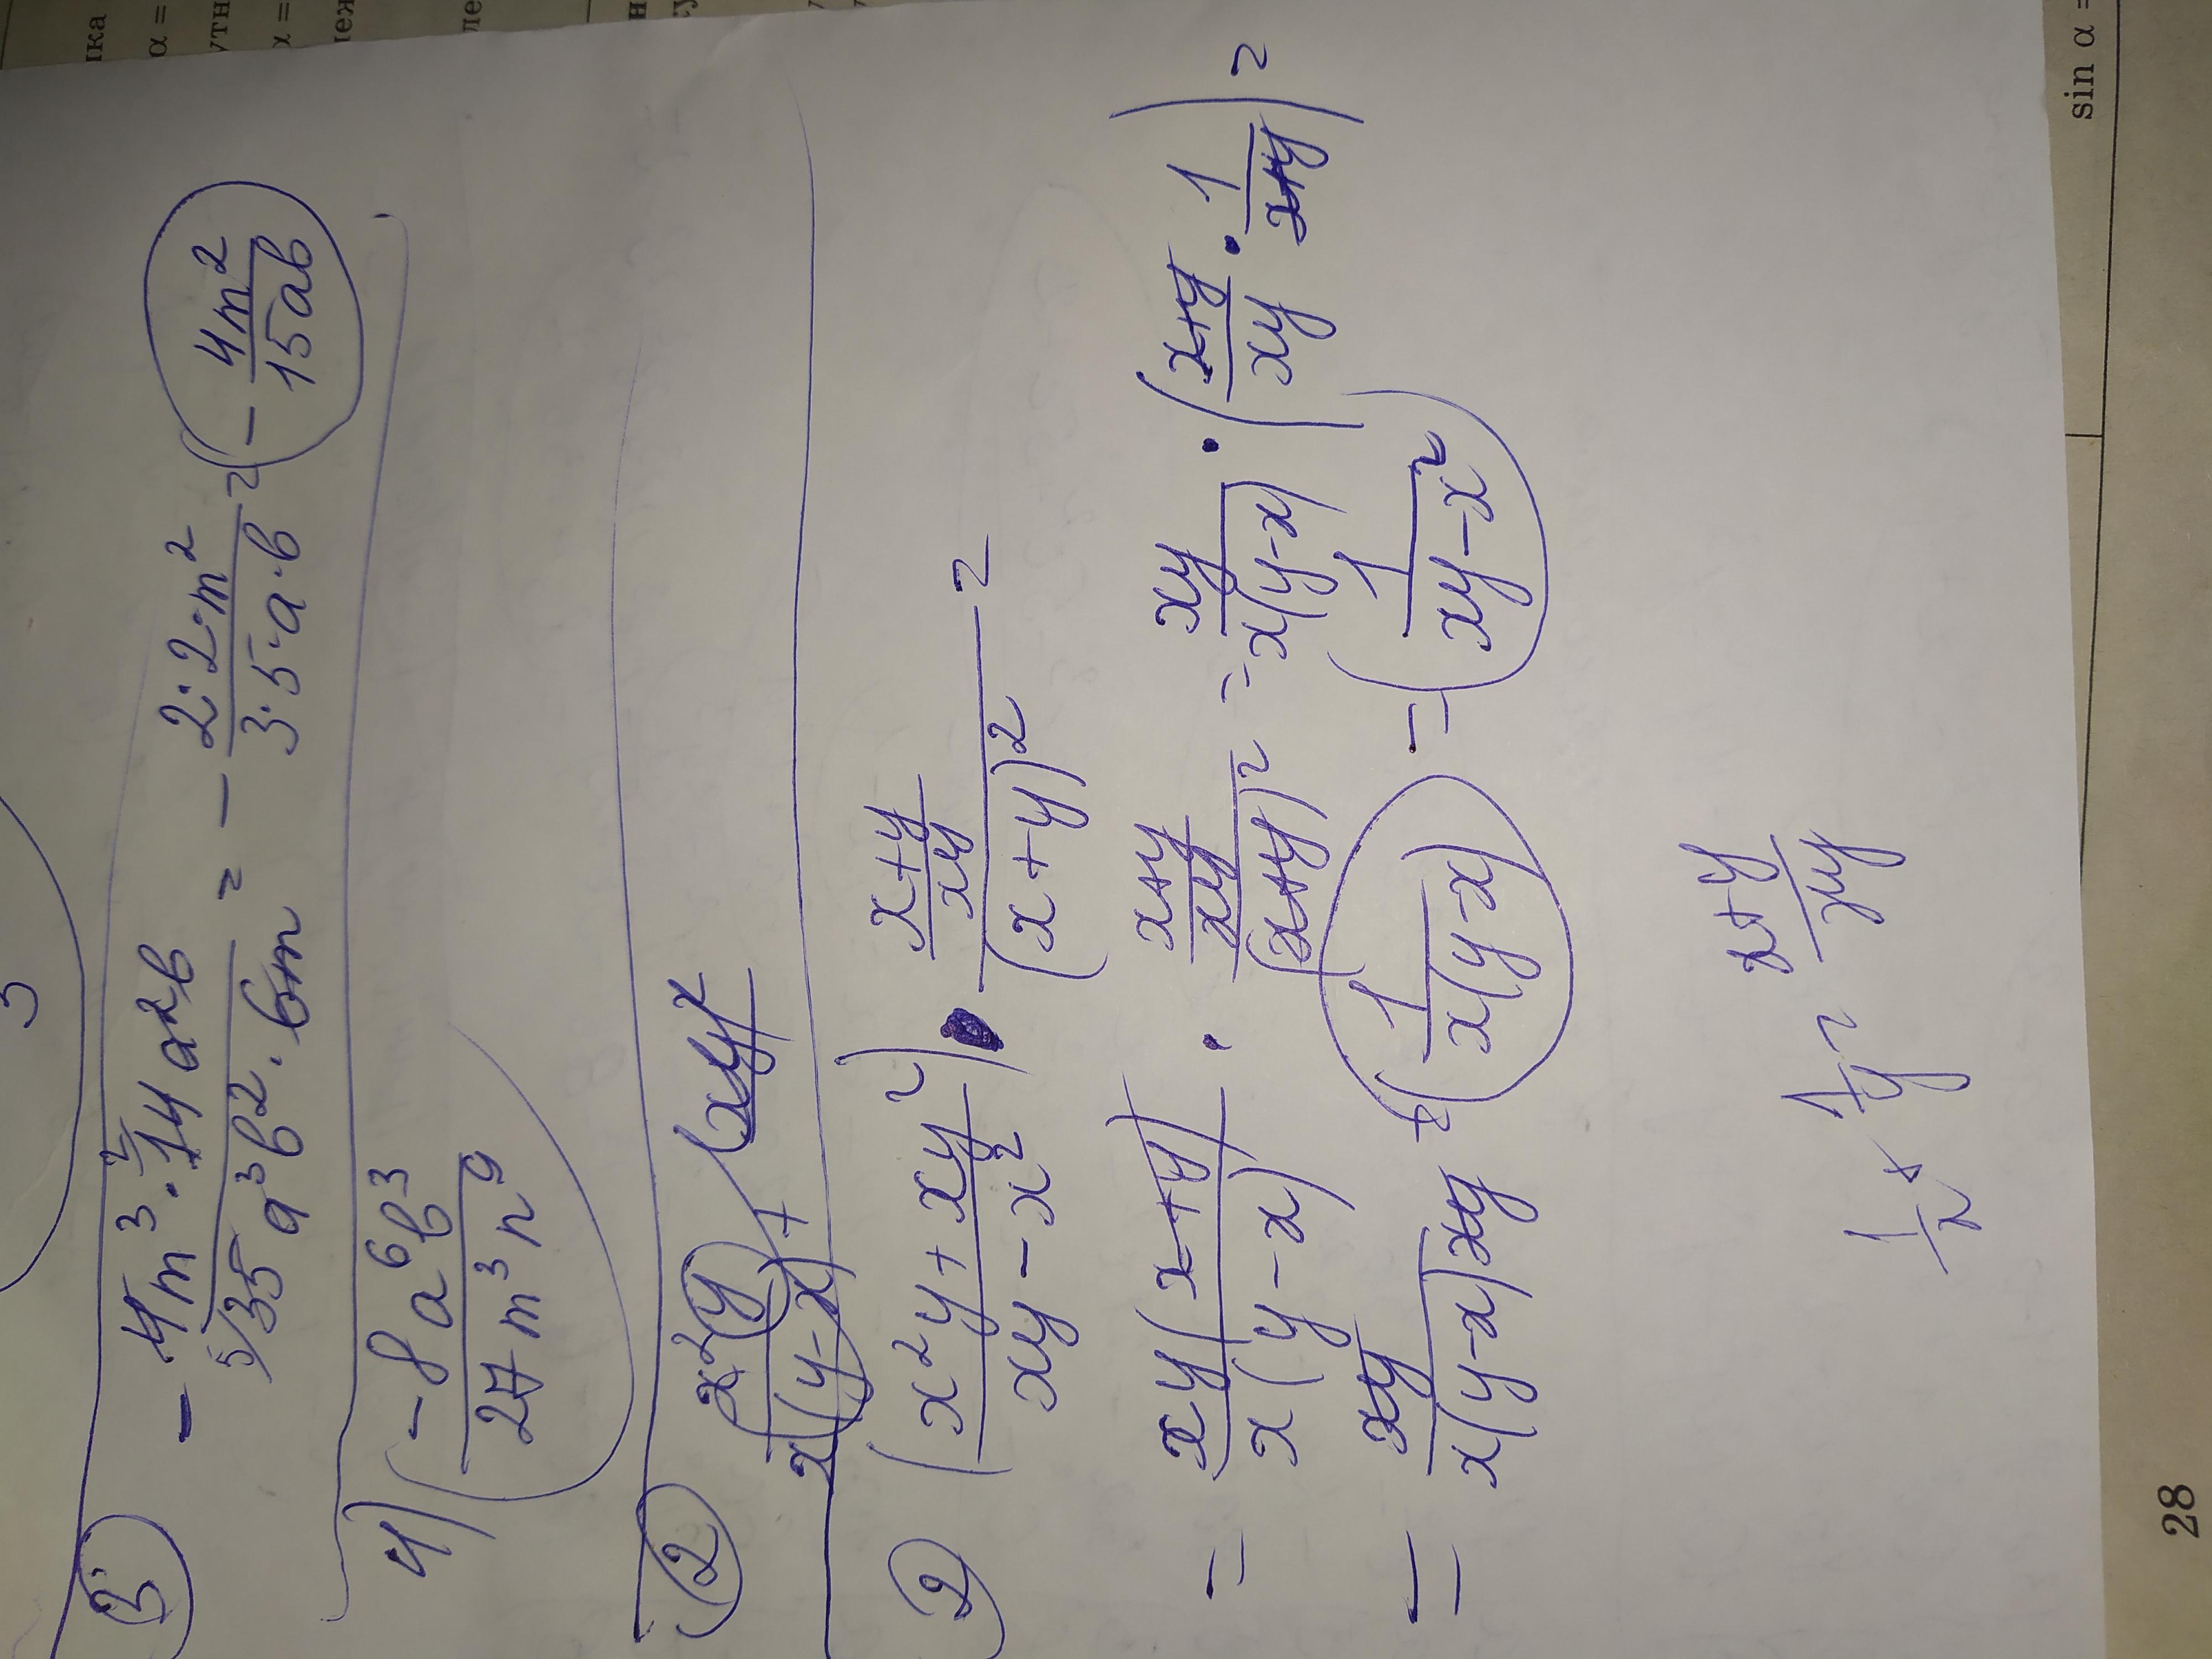 3
3) - 4m³·14a²b / 35a³b²·6m = - 2·2·m² / 3·5·a·b = - 4m² / 15ab
4) -8a⁶b³ / 27m³n⁹
2) x²y / x(y-x) + xy²
2) (x²y + xy² / xy - x²) · x+y / xy / (x+y)² =
= xy(x+y) / x(y-x) · x+y / xy / (x+y)² = xy / x(y-x) · (x+y / xy · 1 / x+y) =
= xy / x(y-x)xy = 1 / x(y-x) = 1 / xy-x²
1/x + 1/y = x+y / xy
28
sin α =
α =